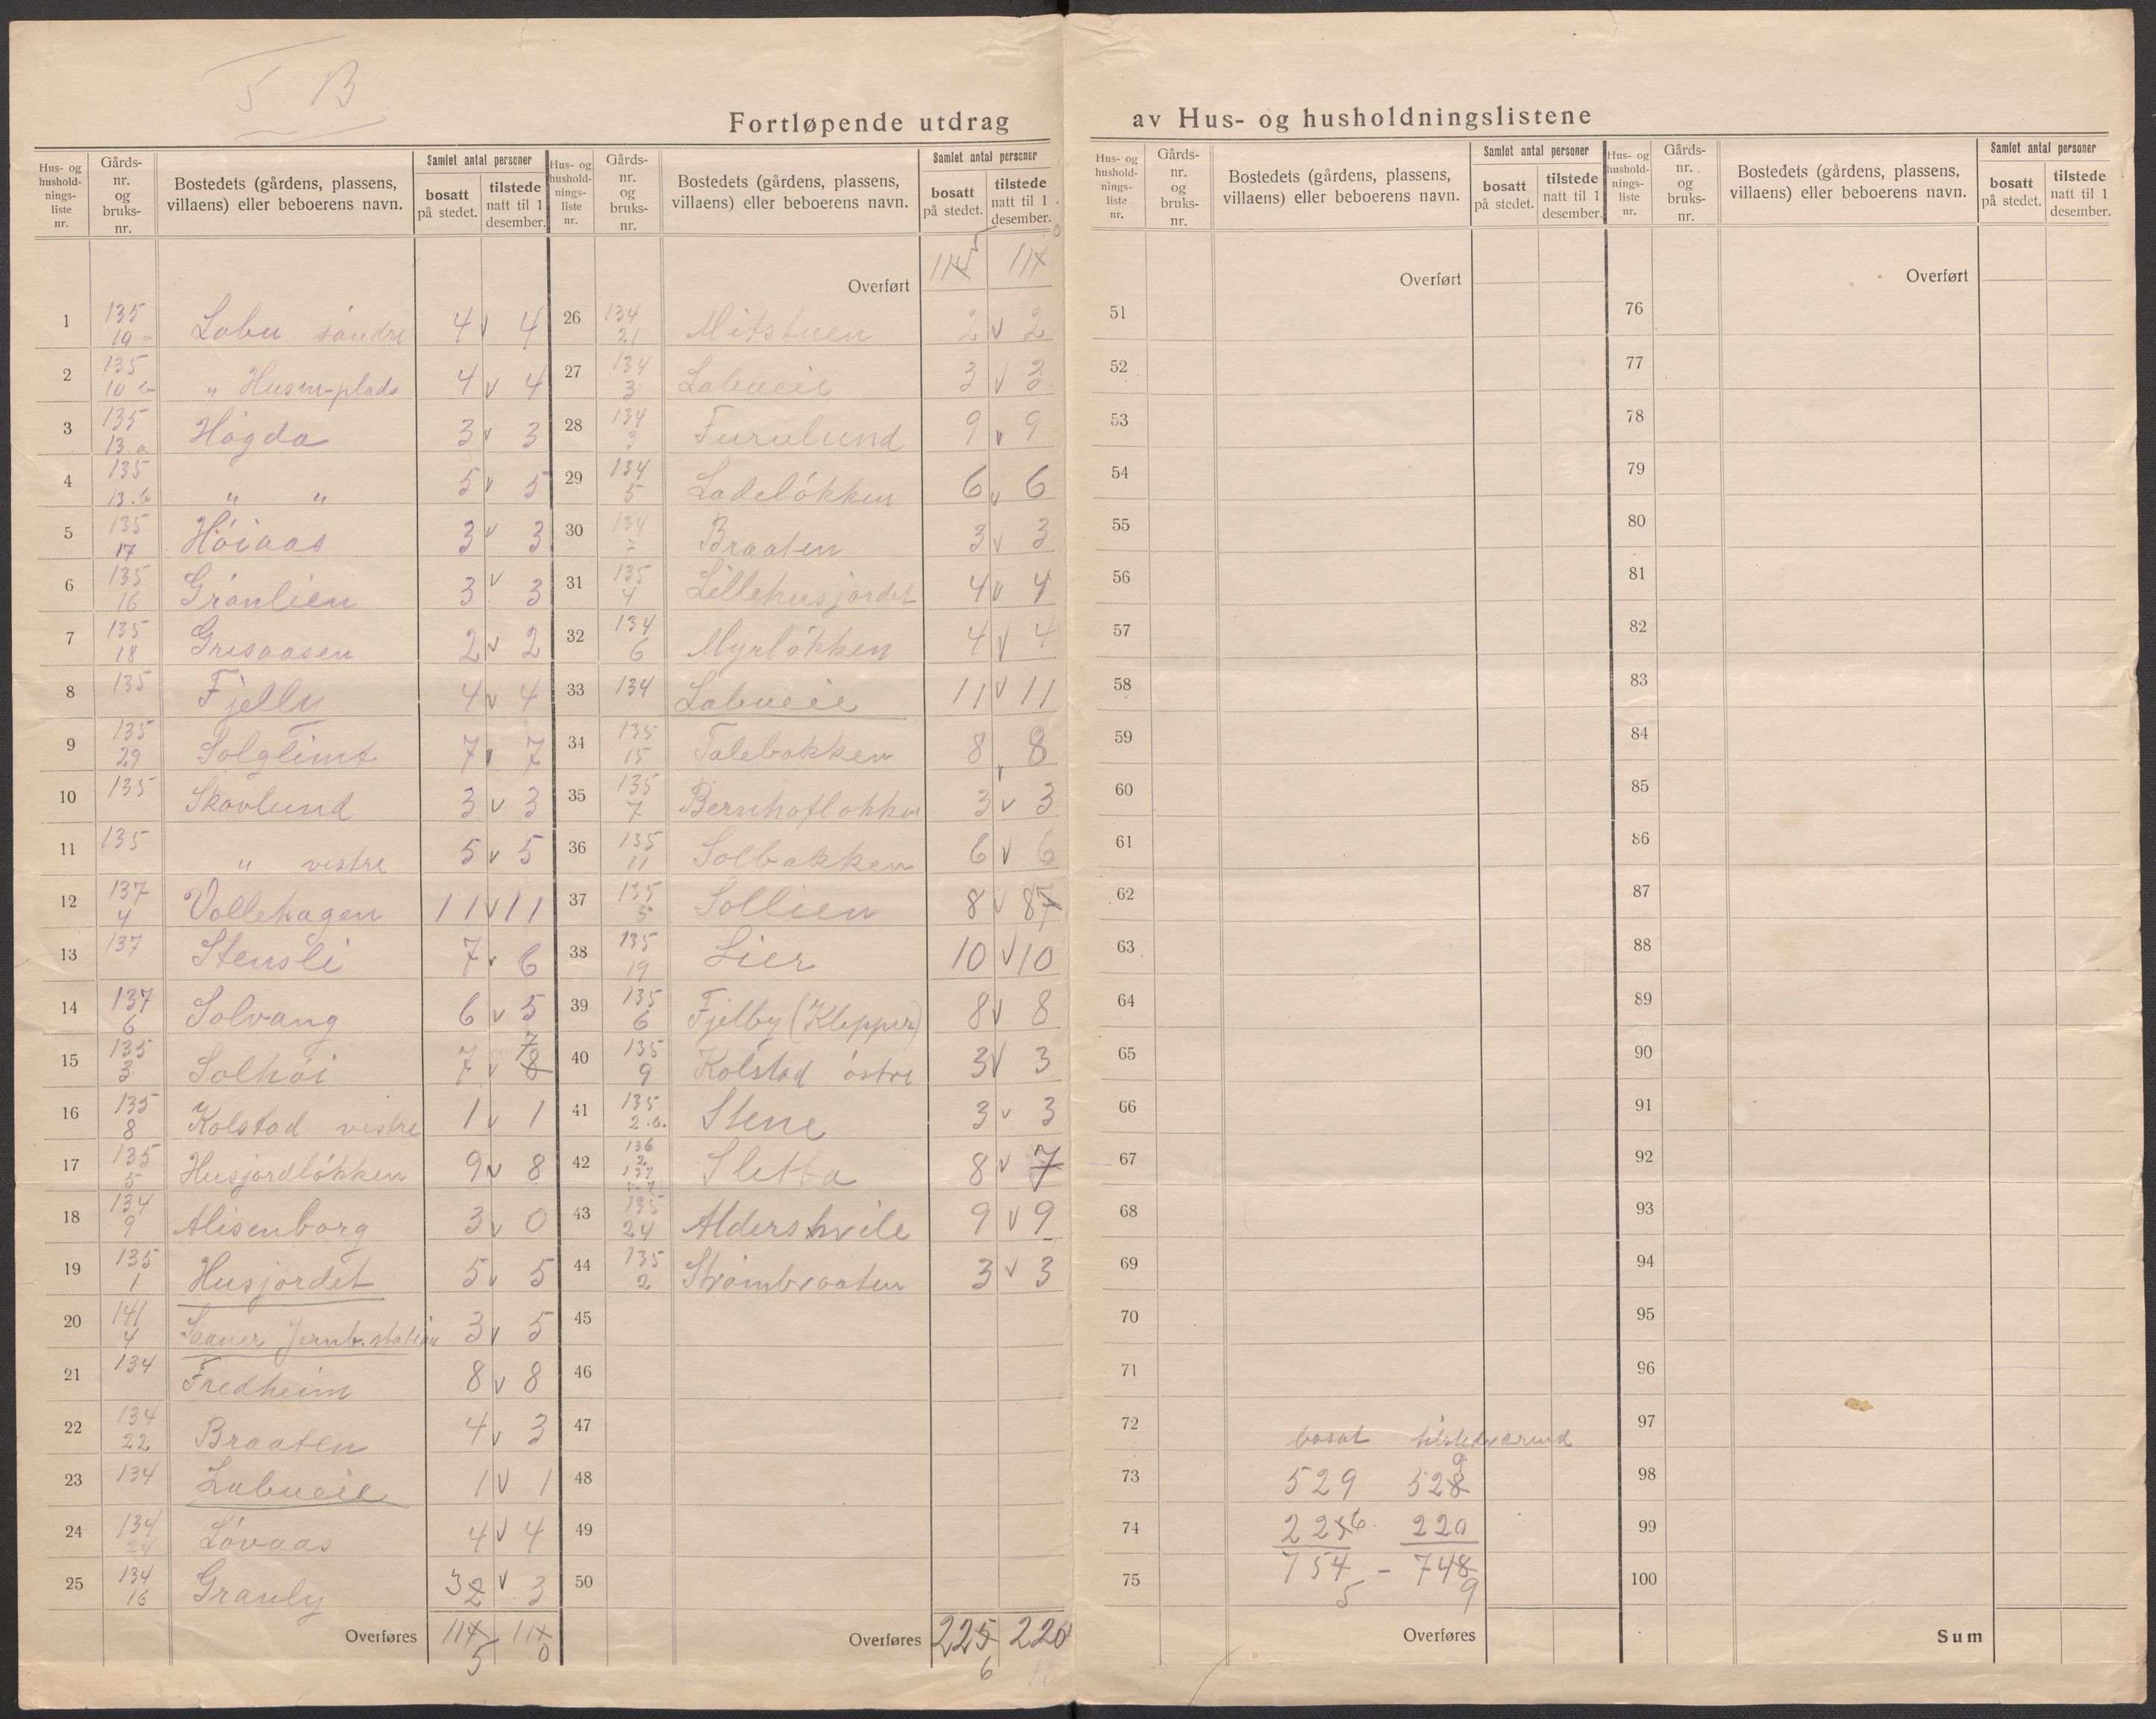 5 B
Fortløpende utdrag av Hus- og husholdningslistene
Hus- og hushold-nings-liste nr. Gårds-nr. og bruks-nr. Bostedets (gårdens, plassens, villaens) eller beboerens navn. Samlet antal personer bosatt på stedet. tilstede natt til 1 desember.
1 135 10 a Labu søndre 4 v 4
2 135 10 b " Husm-plads 4 v 4
3 135 13.a Høgda 3 v 3
4 135 13.b " " 5 v 5
5 135 17 Høiaas 3 v 3
6 135 16 Grønlien 3 v 3
7 135 18 Grisaasen 2 v 2
8 135 Fjelly 4 v 4
9 135 29 Solglimt 7 v 7
10 135 Skovlund 3 v 3
11 135 " vestre 5 v 5
12 137 4 Vollehagen 11 v 11
13 137 Stensli 7 v 6
14 137 6 Solvang 6 v 5
15 135 3 Solhøi 7 v 8 7
16 135 8 Kolstad vestre 1 v 1
17 135 5 Husjordløkken 9 v 8
18 134 9 Alisenborg 3 v 0
19 135 1 Husjordet 5 v 5
20 141 4 Saaner Jernb.station 3 v 5
21 134 Fredheim 8 v 8
22 134 22 Braaten 4 v 3
23 134 Labueie 1 v 1
24 134 24 Løvaas 4 v 4
25 134 16 Granly 3 2 v 3
Overføres 114 5 111 0
Hus- og hushold-nings-liste nr. Gårds-nr. og bruks-nr. Bostedets (gårdens, plassens, villaens) eller beboerens navn. Samlet antal personer bosatt på stedet. tilstede natt til 1 desember.
Overført 114 5 111 0
26 134 21 Mitstuen 2 v 2
27 134 3 Labueie 3 v 3
28 134 3 Furulund 9 v 9
29 134 5 Ladeløkken 6 v 6
30 134 7 Braaten 3 v 3
31 135 4 Lillehusjordet 4 v 4
32 134 6 Myrløkken 4 v 4
33 134 Labueie 11 v 11
34 135 15 Talebakken 8 v 8
35 135 7 Bernhofløkken 3 v 3
36 135 11 Solbakken 6 v 6
37 135 5 Sollien 8 v 8 7
38 135 19 Lier 10 v 10
39 135 6 Fjelby (Klepper) 8 v 8
40 135 9 Kolstad østre 3 v 3
41 135 2.b. Stene 3 v 3
42 136 2 137 Sletta 8 v 7
43 135 24 Aldershvile 9 v 9
44 135 2 Strømbraaten 3 v 3
45
46
47
48
49
50
Overføres 225 6 220
Hus- og hushold-nings-liste nr. Gårds-nr. og bruks-nr. Bostedets (gårdens, plassens, villaens) eller beboerens navn. Samlet antal personer bosatt på stedet. tilstede natt til 1 desember.
Overført
51
52
53
54
55
56
57
58
59
60
61
62
63
64
65
66
67
68
69
70
71
72 bosat tilstedværend
73 529 528 9
74 225 6 220
75 754 5 - 748 9
Overføres
Hus- og hushold-nings-liste nr. Gårds-nr. og bruks-nr. Bostedets (gårdens, plassens, villaens) eller beboerens navn. Samlet antal personer bosatt på stedet. tilstede natt til 1 desember.
Overført
76
77
78
79
80
81
82
83
84
85
86
87
88
89
90
91
92
93
94
95
96
97
98
99
100
Sum